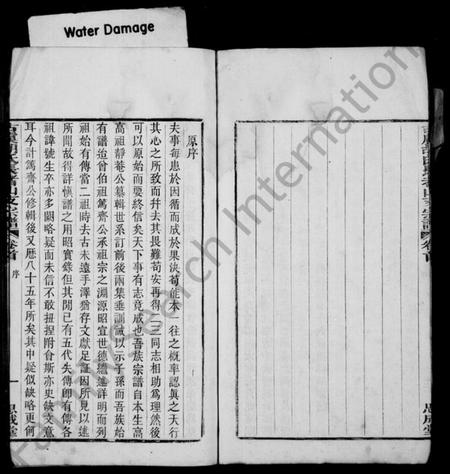 Water Damage
原序
夫事每患於因循而成於果決苟能本一往之概率認眞之天行
其心之所致而幷去其畏難苟安再得二三同志相助爲理然後
可以原始而要終信矣天下事有志竟成也吾族宗譜自本生高
高祖靜菴公纂輯世系訂前後兩集垂訓誡以示子孫而吾族始
有譜迨曾伯祖篤齋公承祖宗之淵源昭宣世德纘述詳明而列
祖始有傳當二祖時去古未遠手澤猶存文獻足証因所見以述
所聞故得詳愼譜之用昭實錄但其閒已有五代失傳卽有傳各
祖諱號生卒亦多闕略疑而未信不敢扭揑附會斯亦史缺文意
耳今計篤齋公修輯後又歷八十五年所矣其中疑似缺略更倒
卷首
序
一
思成堂
卷首
思成堂